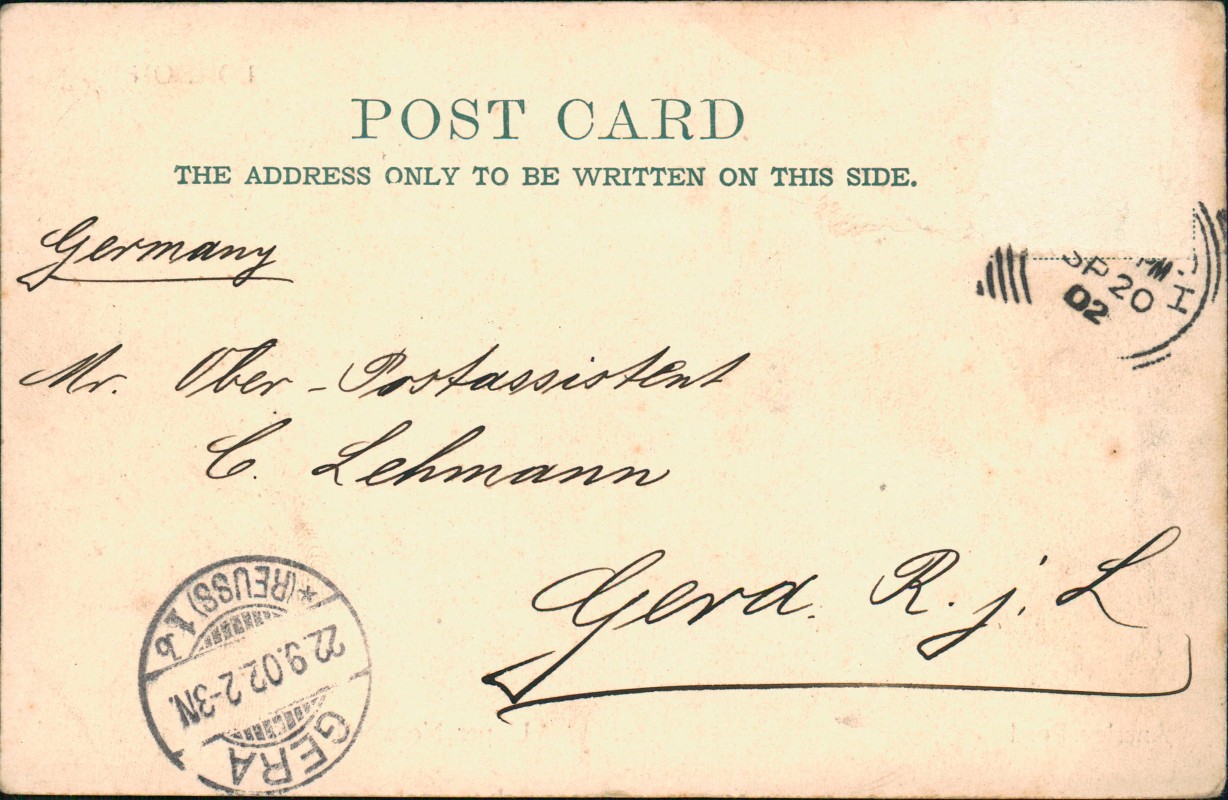 POST CARD
THE ADDRESS ONLY TO BE WRITTEN ON THIS SIDE.
Germany
PM
SP 20 I
02
Mr. Ober-Postassistent
C. Lehmann
Gera. R. j. L
*(REUSS) 1. b
22.9.02.2-3N.
GERA